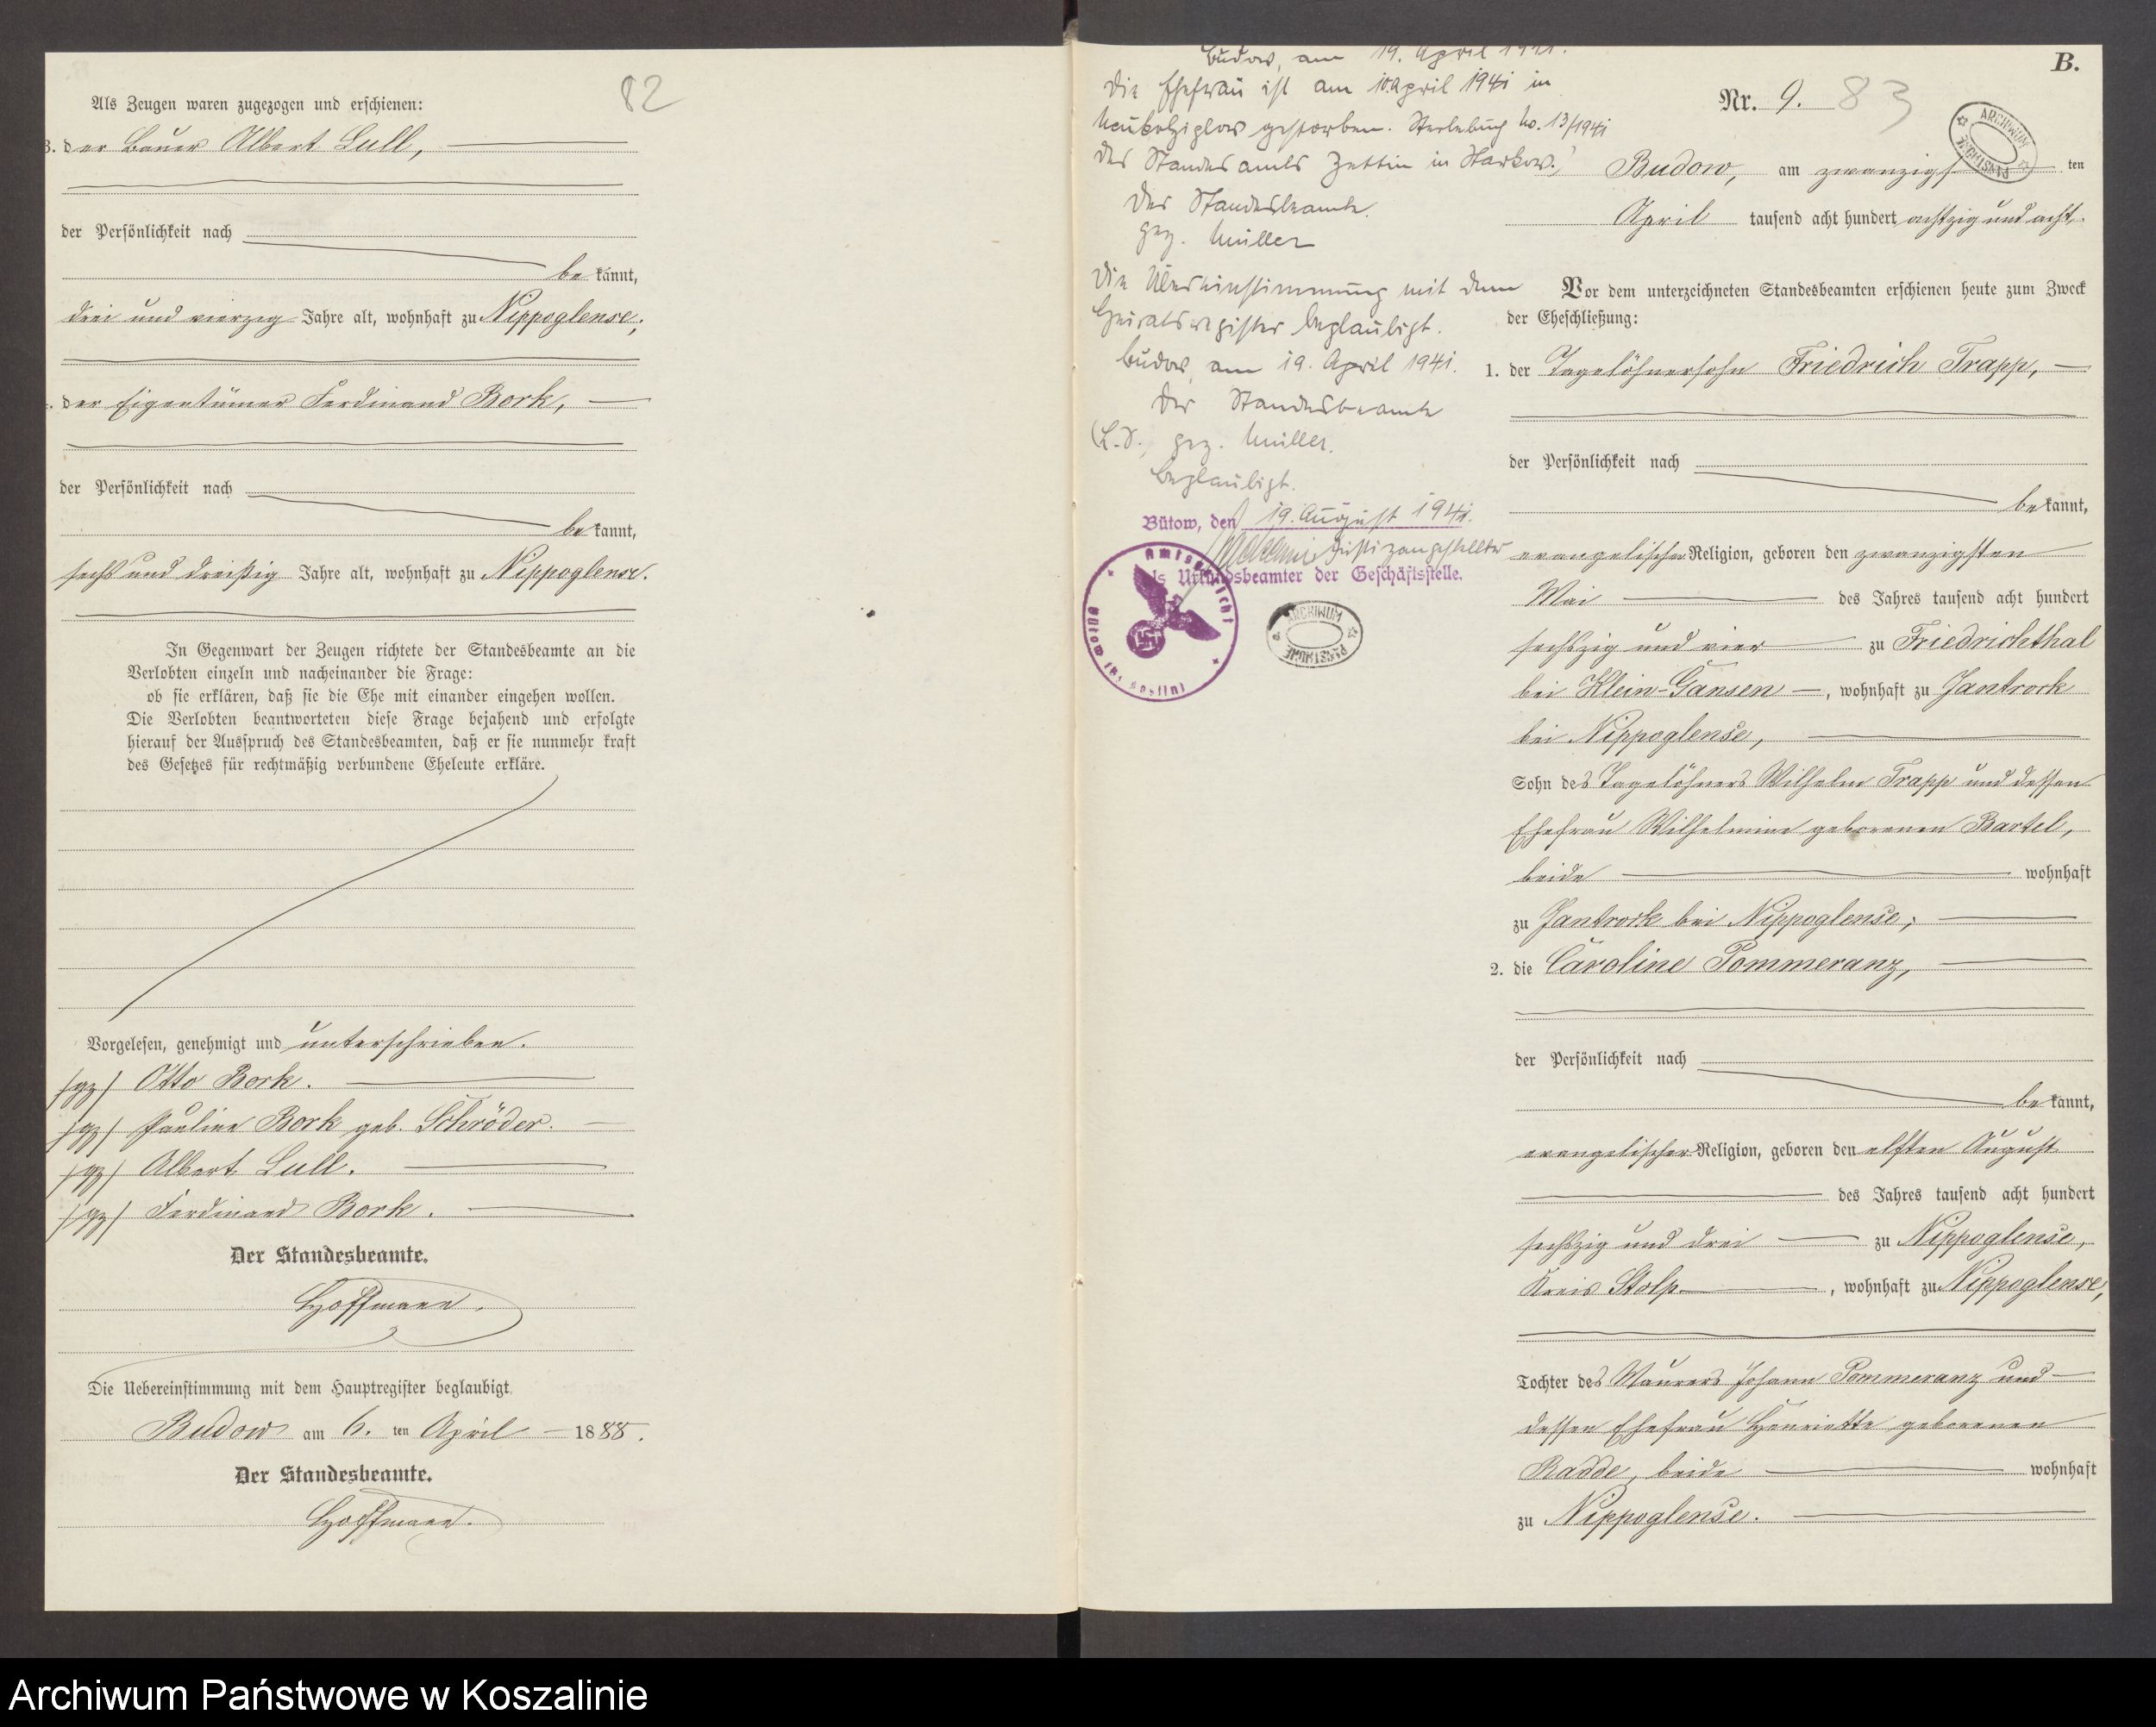 82
Als Zeugen waren zugezogen und erschienen:
3. der Bauer Albert Lull,
der Persönlichkeit nach
be kannt,
drei und vierzig Jahre alt, wohnhaft zu Nippoglense;
der Eigentümer Ferdinand Bork,
der Persönlichkeit nach
be kannt,
sechs und dreißig Jahre alt, wohnhaft zu Nippoglense.
In Gegenwart der Zeugen richtete der Standesbeamte an die
Verlobten einzeln und nacheinander die Frage:
ob sie erklären, daß sie die Ehe mit einander eingehen wollen.
Die Verlobten beantworteten diese Frage bejahend und erfolgte
hierauf der Ausspruch des Standesbeamten, daß er sie nunmehr kraft
des Gesetzes für rechtmäßig verbundene Eheleute erkläre.
Vorgelesen, genehmigt und unterschrieben.
/gz/ Otto Bork.
/gz/ Pauline Bork geb. Schröder.
/gz/ Albert Lull.
/gz/ Ferdinand Bork.
Der Standesbeamte.
Hoffmann.
Die Uebereinstimmung mit dem Hauptregister beglaubigt
Budow am 6. ten April 1888.
Der Standesbeamte.
Hoffmann.
Budow, am 19. April 1941.
Die Ehefrau ist am 10. April 1941 in
gestorben. Sterbebuch No. 13/1941
des Standesamts Zettin in Starkow.
Der Standesbeamte.
gez. Müller
Die Übereinstimmung mit dem
Heiratsregister beglaubigt.
Budow, am 19. April 1941.
Der Standesbeamte
(L.S.) gez. Müller.
Beglaubigt.
Bütow, den 19. August 1941.
Justizangestellter
als Urkundsbeamter der Geschäftsstelle.
Amtsgericht
Bütow
ARCHIWUM
PAŃSTWOWE
B.
Nr. 9.
83
ARCHIWUM
PAŃSTWOWE
Budow, am zwanzigs ten
April tausend acht hundert achtzig und acht.
Vor dem unterzeichneten Standesbeamten erschienen heute zum Zweck
der Eheschließung:
1. der Tagelöhnersohn Friedrich Trapp,
der Persönlichkeit nach
be kannt,
evangelischer Religion, geboren den zwanzigsten
Mai des Jahres tausend acht hundert
sechszig und vier zu Friedrichthal
bei Klein-Gansen, wohnhaft zu Jantrock
bei Nippoglense,
Sohn des Tagelöhners Wilhelm Trapp und dessen
Ehefrau Wilhelmine geborenen Bartel,
beide wohnhaft
zu Jantrock bei Nippoglense;
2. die Caroline Pommeranz,
der Persönlichkeit nach
be kannt,
evangelischer Religion, geboren den elften August
des Jahres tausend acht hundert
sechszig und drei zu Nippoglense,
Kreis Stolp, wohnhaft zu Nippoglense,
Tochter des Maurers Johann Pommeranz und
dessen Ehefrau Henriette geborenen
Radde, beide wohnhaft
zu Nippoglense.
Archiwum Państwowe w Koszalinie